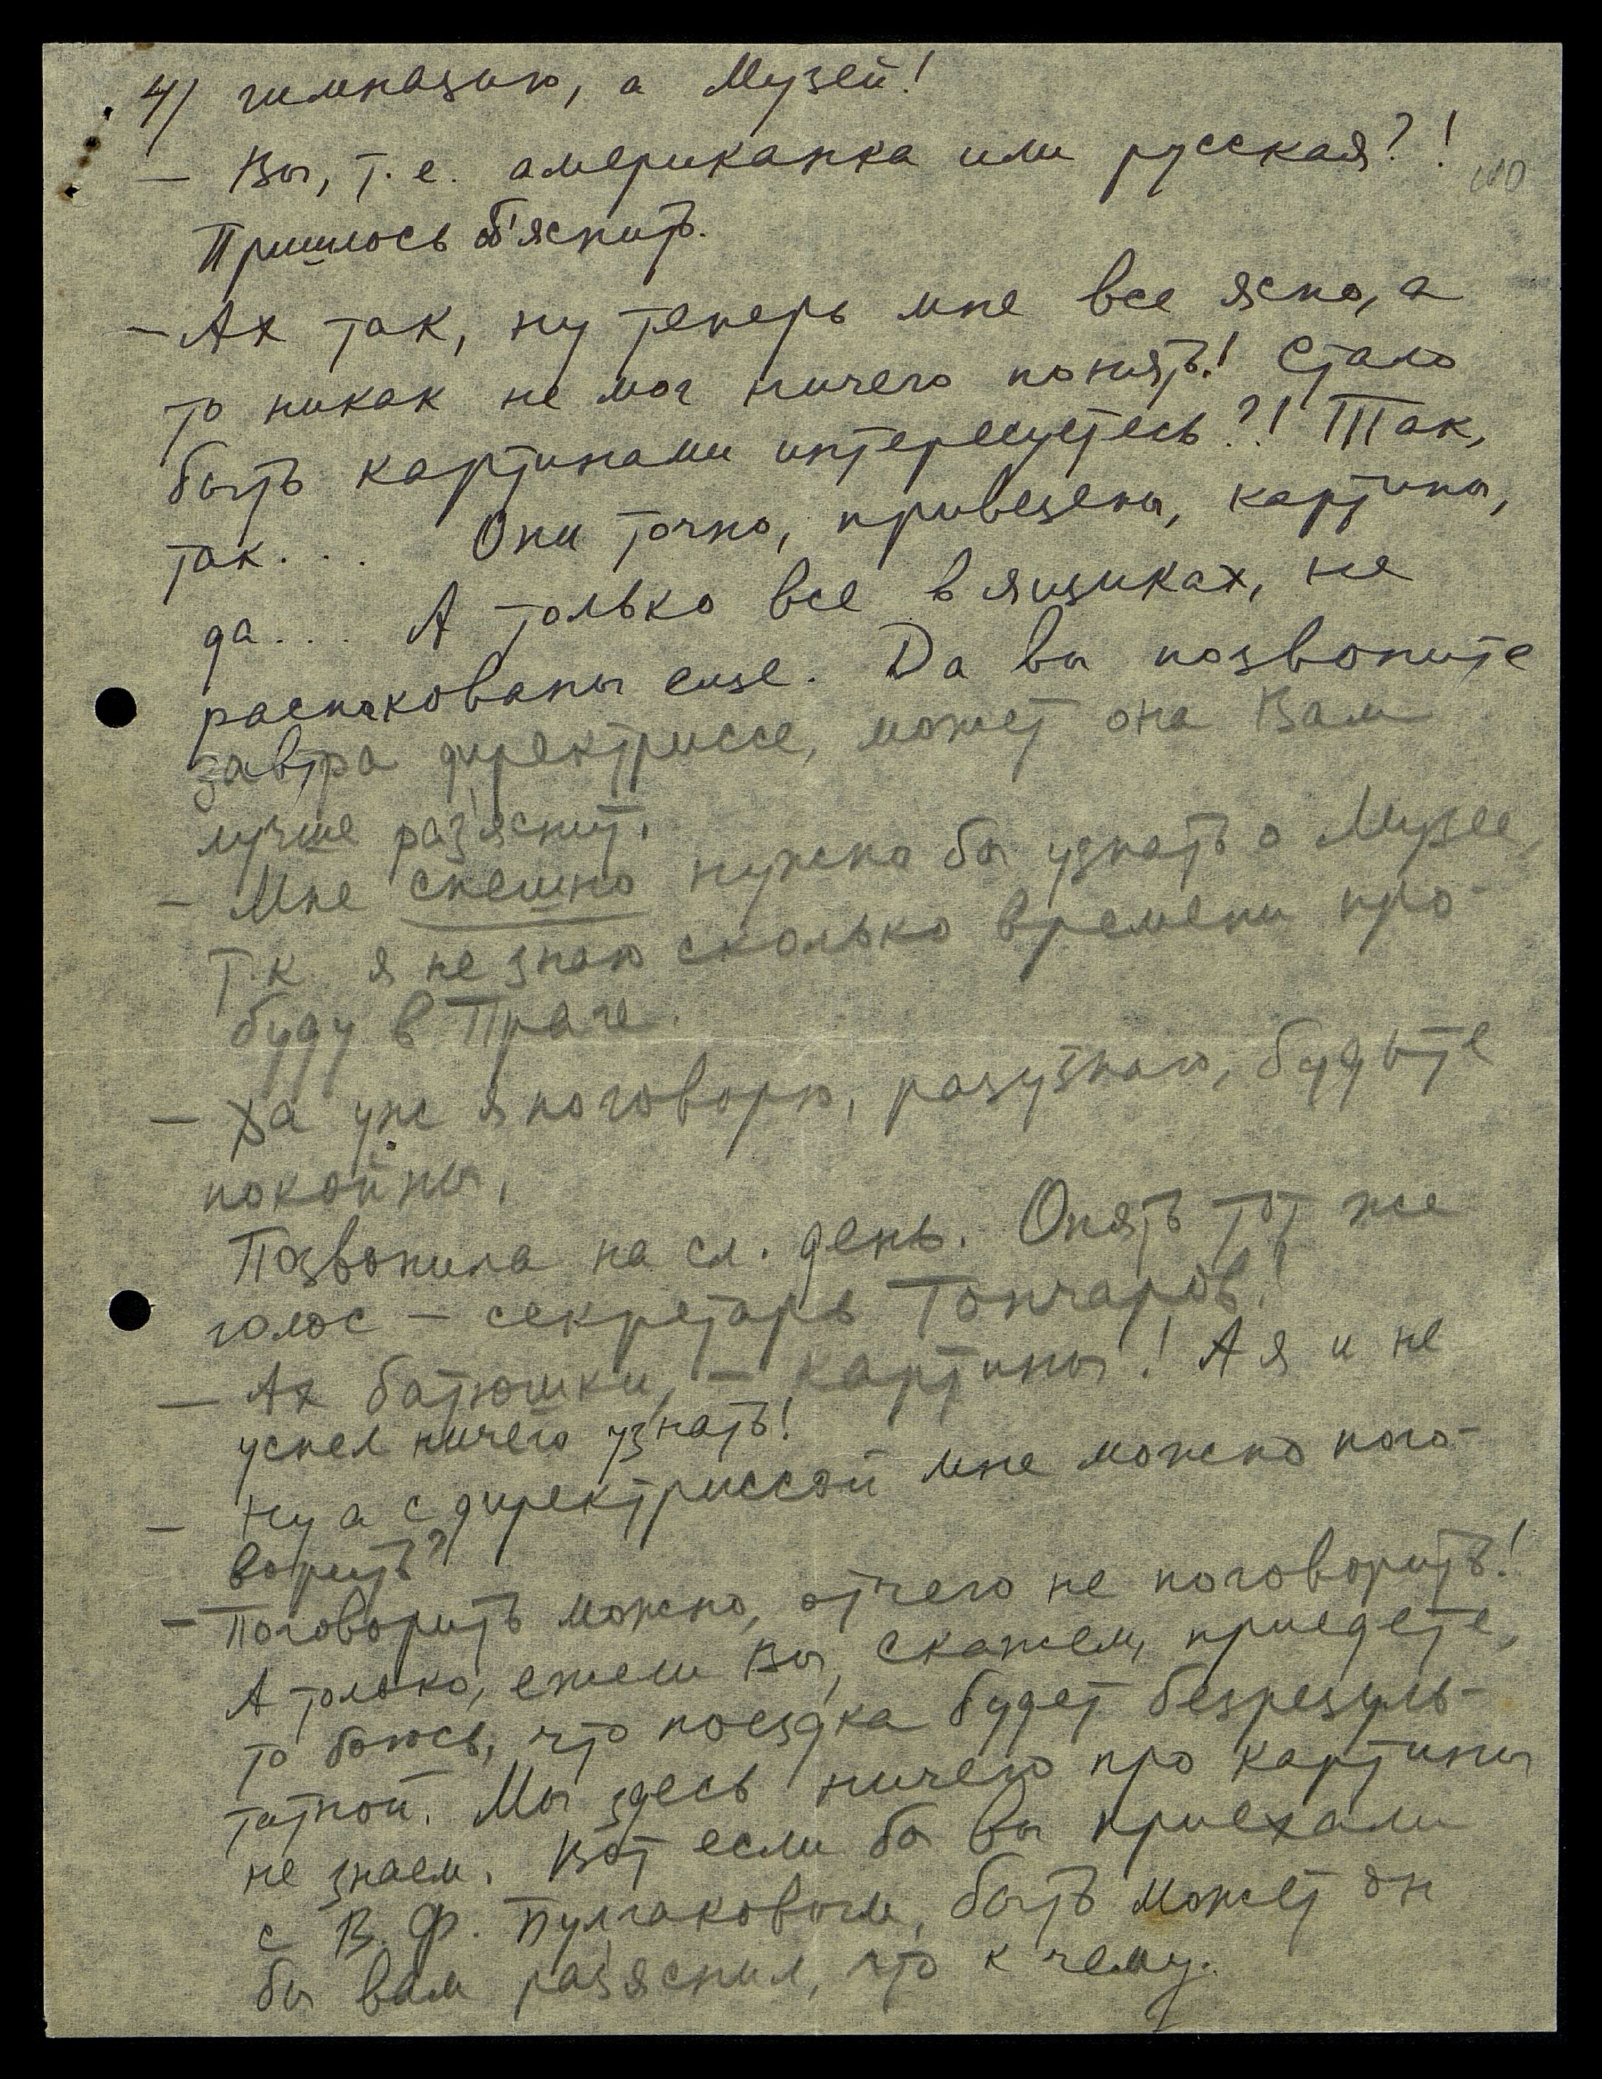 4/ гимназию, а Музей!
— Вы, т.е. американка или русская?!
Пришлось об'яснить.
— Ах так, ну теперь мне все ясно, а
то никак не мог ничего понять! Стало
быть картинами интересуетесь?! Так,
так... Они точно, привезены, картины,
да... А только все в ящиках, не
распакованы еще. Да вы позвоните
завтра директриссе, может она Вам
лучше раз'яснит.
— Мне спешно нужно бы узнать о Музее,
т.к я не знаю сколько времени про-
буду в Праге.
— Да уж я поговорю, разузнаю, будьте
покойны,
Позвонила на сл. день. Опять тот же
голос — секретарь Гончаров!
— Ах батюшки, — картины! А я и не
успел ничего узнать!
— Ну а с директриссой мне можно пого-
ворить?
— Поговорить можно, отчего не поговорить!
А только, ежели Вы, скажем, приедете,
то боюсь, что поездка будет безрезуль-
татной. Мы здесь ничего про картины
не знаем. Вот если бы вы приехали
с В. Ф. Булгаковым, быть может он
бы вам раз'яснил, что к чему.